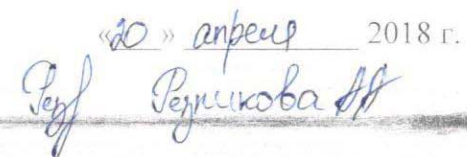 «20» апреля 2018 г.
Резникова АА